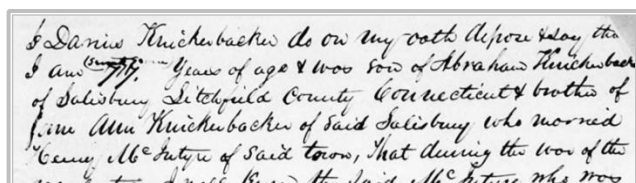 I Darius Knickerbacker do on my oath depose & say tha
I am Years of age & was son of Abraham Knickerback
of Salisbury Litchfield County Connecticut & brother of
Jane Ann Knickerbacker of Said Salisbury who married
Henry McIntyre of Said town, That during the war of the
the Said McIntyre who was